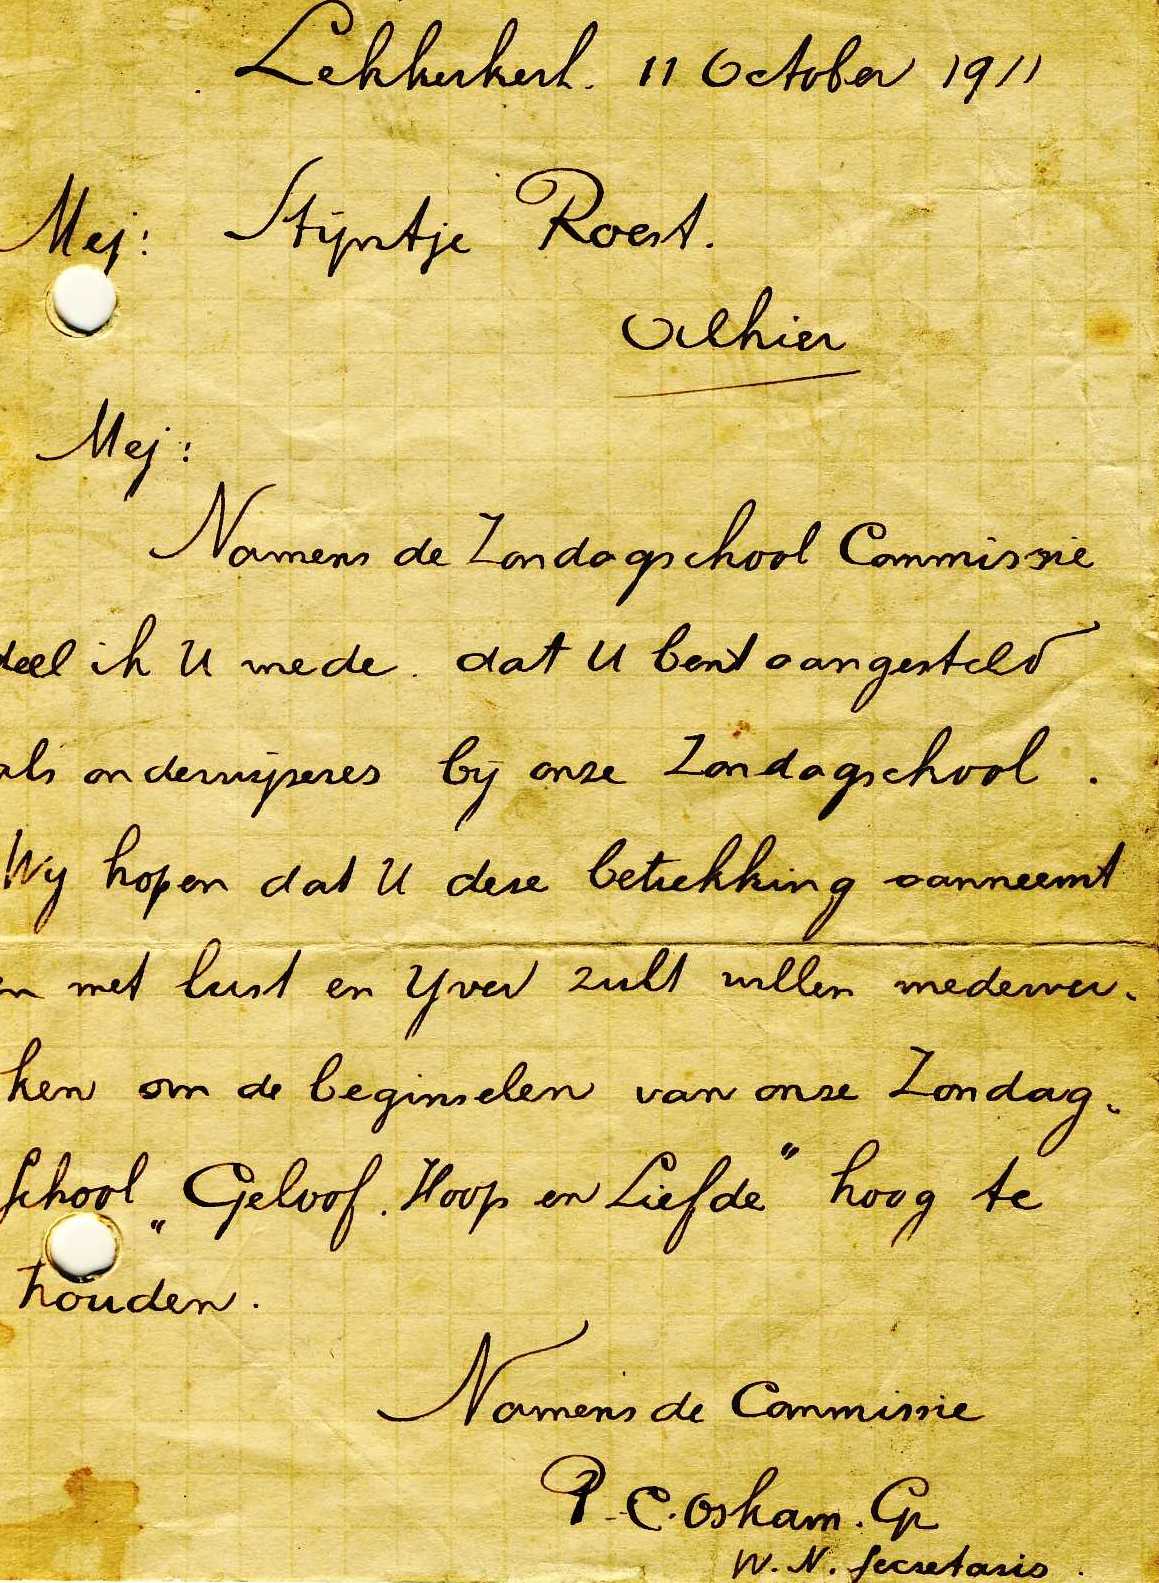 Lekkerkerk. 11 October 1911
Mej: Stijntje Roest.
Alhier
Mej:
Namens de Zondagschool Commissie
deel ik U mede. dat U bent aangesteld
als onderwijseres bij onze Zondagschool.
Wij hopen dat U deze betrekking aanneemt
en met lust en Yver zult willen medewer-
ken om de beginselen van onze Zondag-
school „Geloof. Hoop en Liefde” hoog te
houden.
Namens de Commissie
P. C. Oskam. Gz
W. N. Secretaris.